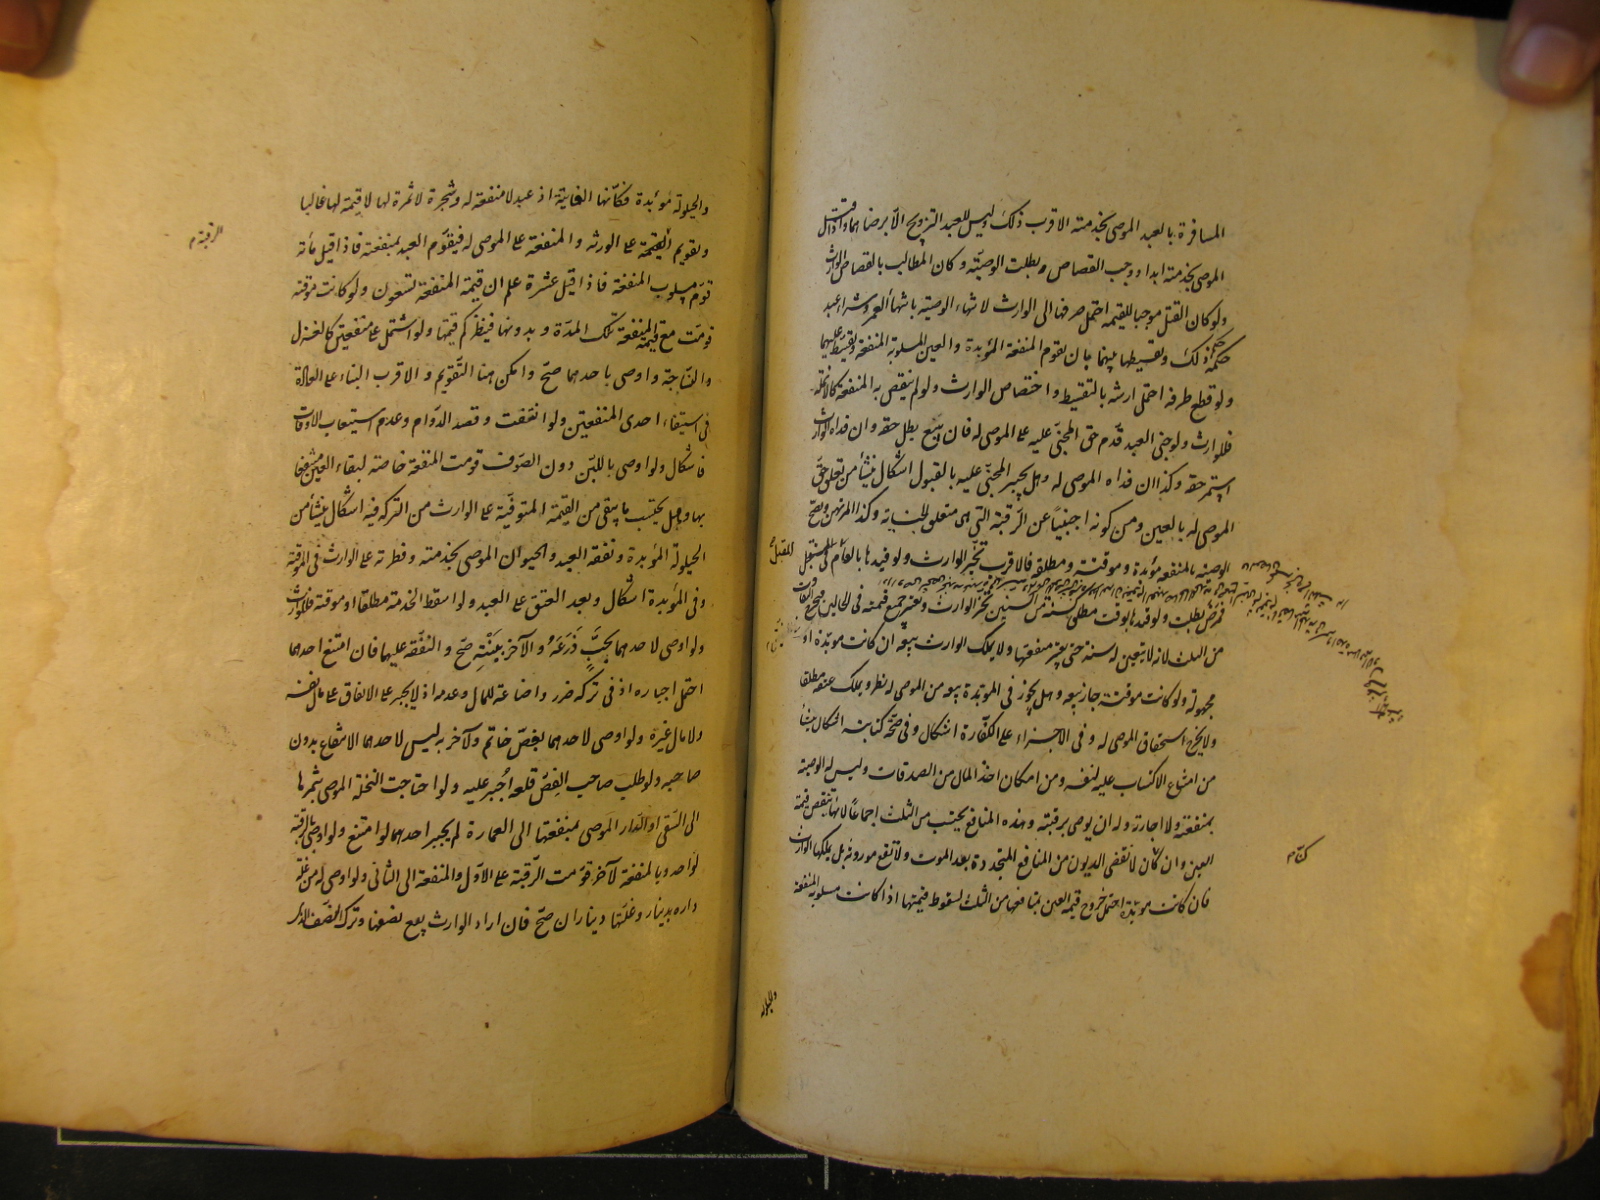 المسافرة بالعبد الموصى بخدمته الاقرب ذلك وليس للعبد التزويج الا برضاهما واذا قتل
الموصى بخدمته ابدا ووجب القصاص بطلت الوصية وكان المطالب بالقصاص الوارث
ولو كان القتل موجبا للقيمة احتمل صرفها الى الوارث لانتهاء الوصية بانتهاء العمر وشراء عبد
حكمه ذلك وتقسيطها بينهما بان يقوم المنفعة المؤبدة والعين المسلوبة المنفعة وتقسيط عليهما
ولو قطع طرفه احتمل ارشه بالتقسيط واختصاص الوارث ولو لم ينقص به المنفعة كالانملة
فللوارث ولو جنى العبد قدم حق المجني عليه على الموصى له فان بيع بطل حقه وان فداه الوارث
استمر حقه وكذا ان فداه الموصى له وهل يجبر المجني عليه بالقبول اشكال ينشأ من تعلق حق
الموصى له بالعين ومن كونه اجنبيا عن الرقبة التي هي متعلق الجناية وكذا المرتهن وتصح
الوصية بالمنفعة مؤبدة وموقتة ومطلقة فالاقرب تخير الوارث ولو قيدها بالعام المستقبل
فمرض بطلت ولو قيدها بوقت مطلق كسنة من السنين تخير الوارث ويعتبر جميع قيمته في الحالين
من الثلث لانه لا يتعين له سنة حتى يعتبر منفعتها ولا يملك الوارث بيعه ان كانت مؤبدة او
مجهولة ولو كانت موقتة جاز بيعه وهل يجوز في المؤبدة بيعه من الموصى له نظر ويملك عتقه مطلقا
ولا يخرج استحقاق الموصى له وفي الاجزاء على الكفارة اشكال وفي صحة كتابته اشكال ينشأ
من امتناع الاكتساب عليه لنفسه ومن امكان اخذ المال من الصدقات وليس له الوصية
بمنفعته ولا اجارته وله ان يوصى برقبته وهذه المنافع يحتسب من الثلث اجماعا لانها تنقص قيمة
العين وان كان لا تقضى الديون من المنافع المتجددة بعد الموت ولا تقع موروثة بل يملكها الوارث
فان كانت مؤبدة احتمل خروج قيمة العين بمنافعها من الثلث لسقوط قيمتها اذا كانت مسلوبة المنفعة
والحيلولة
والحيلولة مؤبدة فكأنها الفايتة اذ عبد لا منفعة له وشجرة لا ثمرة لها لا قيمة لها غالبا
وتقويم القيمة على الورثة والمنفعة على الموصى له فيقوم العبد بمنفعته فاذا قيل مأة
قوم مسلوب المنفعة فاذا قيل عشرة علم ان قيمة المنفعة تسعون ولو كانت موقتة
قومت مع قيمة المنفعة تلك المدة وبدونها فينظر كم قيمتها ولو اشتمل على منفعتين كالغزل
والنساجة واوصى باحدهما صح وامكن هنا التقويم والاقرب البناء على العادة
في استيفاء احدى المنفعتين ولو انتفت وقصد الدوام وعدم استيعاب الاوقات
فاشكال ولو اوصى باللبن دون الصوف قومت المنفعة خاصة لبقاء العين منتفعا
بها وهل يحتسب ما يبقى من القيمة المتوفية على الوارث من التركة فيه اشكال ينشأ من
الحيلولة المؤبدة ونفقة العبد والحيوان الموصى بخدمته وفطرته على الوارث في الموقتة
وفي المؤبدة اشكال وبعد العتق على العبد ولو اسقط الخدمة مطلقا او موقتة فللوارث
ولو اوصى لاحدهما بحب ذرعه والآخر بتبنه صح والنفقة عليهما فان امتنع احدهما
احتمل اجباره اذ في تركه ضرر واضاعة للمال وعدمه اذ لا يجبر على الانفاق على مال نفسه
ولا مال غيره ولو اوصى لاحدهما بفص خاتم ولآخر به ليس لاحدهما الانتفاع بدون
صاحبه ولو طلب صاحب الفص قلعه اجبر عليه ولو احتاجت النخلة الموصى بثمرها
الى السقي او الدار الموصى بمنفعتها الى العمارة لم يجبر احدهما لو امتنع ولو اوصى بالرقبة
لواحد وبالمنفعة لآخر قومت الرقبة على الاول والمنفعة الى الثاني ولو اوصى له من غلة
داره بدينار وغلتها ديناران صح فان اراد الوارث بيع نصفها وترك النصف الذي